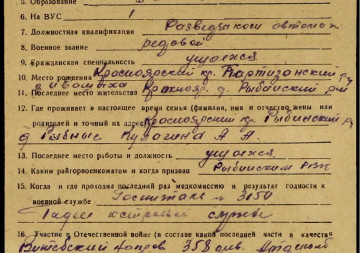 5. Образование
6. На ВУС 1
7. Должностная квалификация Разведчики автомат
8. Военное звание рядовой
9. Гражданская специальность учащеися
10. Место рождения Красноярский кр. Партизанский р.
д Ивашиха
11. Последнее место жительства Краснояр. д. Рыбинский р-н
12. Где проживает в настоящее время семья (фамилия, имя и отчество жены или
родителей и точный их адрес) Красноярский кр. Рыбинский р
д Рыбное Кулагина А. А.
13. Последнее место работы и должность учащеися
14. Каким райгорвоенкоматом и когда призван Рыбинским РВК
15. Когда и где проходил последний раз медкомиссию и результат годности к
военной службе Госпиталь № 3150
Годен к строевой службе
16. Участие в Отечественной войне (в составе какой последней части и в качестве
Витебский направ 358 див.